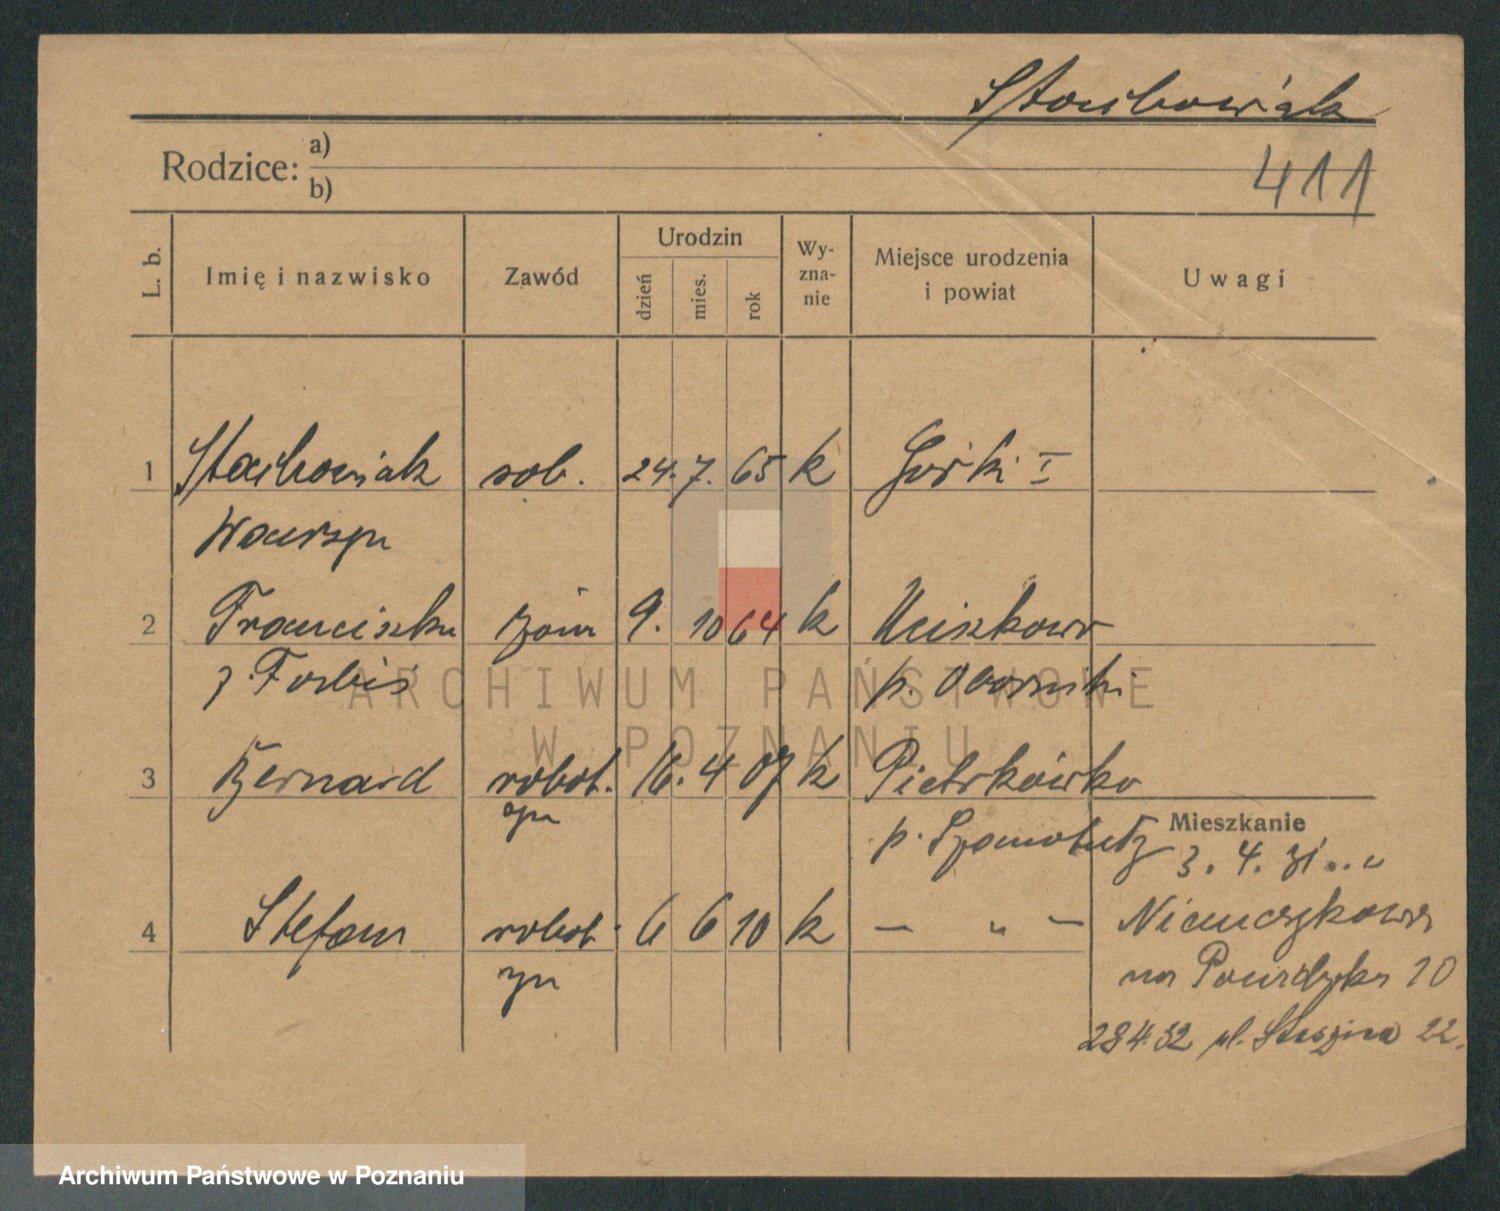 Stachowiak
Rodzice: a)
b)
411
L. b.
Imię i nazwisko
Zawód
Urodzin
dzień
mies.
rok
Wy-
zna-
nie
Miejsce urodzenia
i powiat
Uwagi
1 Stachowiak rob. 24. 7. 65 k Górki I
Wawrzyn
2 Franciszka żona 9. 10 64 k Uciszkowo
z p. Obornicki
3 Bernard robot. 16. 4 07 k Pietrkówko
p. Szamotuły
Mieszkanie
3. 4. 31
4 Stefan robot 6 6 10 k — " —
10
28 4. 32 ul. 22.
ARCHIWUM PAŃSTWOWE
W POZNANIU
Archiwum Państwowe w Poznaniu